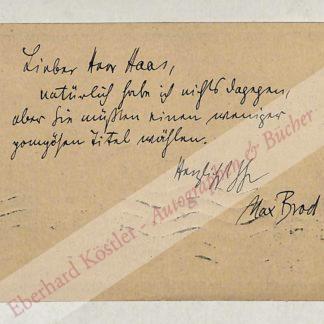 Lieber Herr Haas,
natürlich habe ich nichts dagegen,
aber Sie müßten einen weniger
pompösen Titel wählen.
Herzlichst Ihr
Max Brod
Eberhard Köstler - Autographen & Bücher